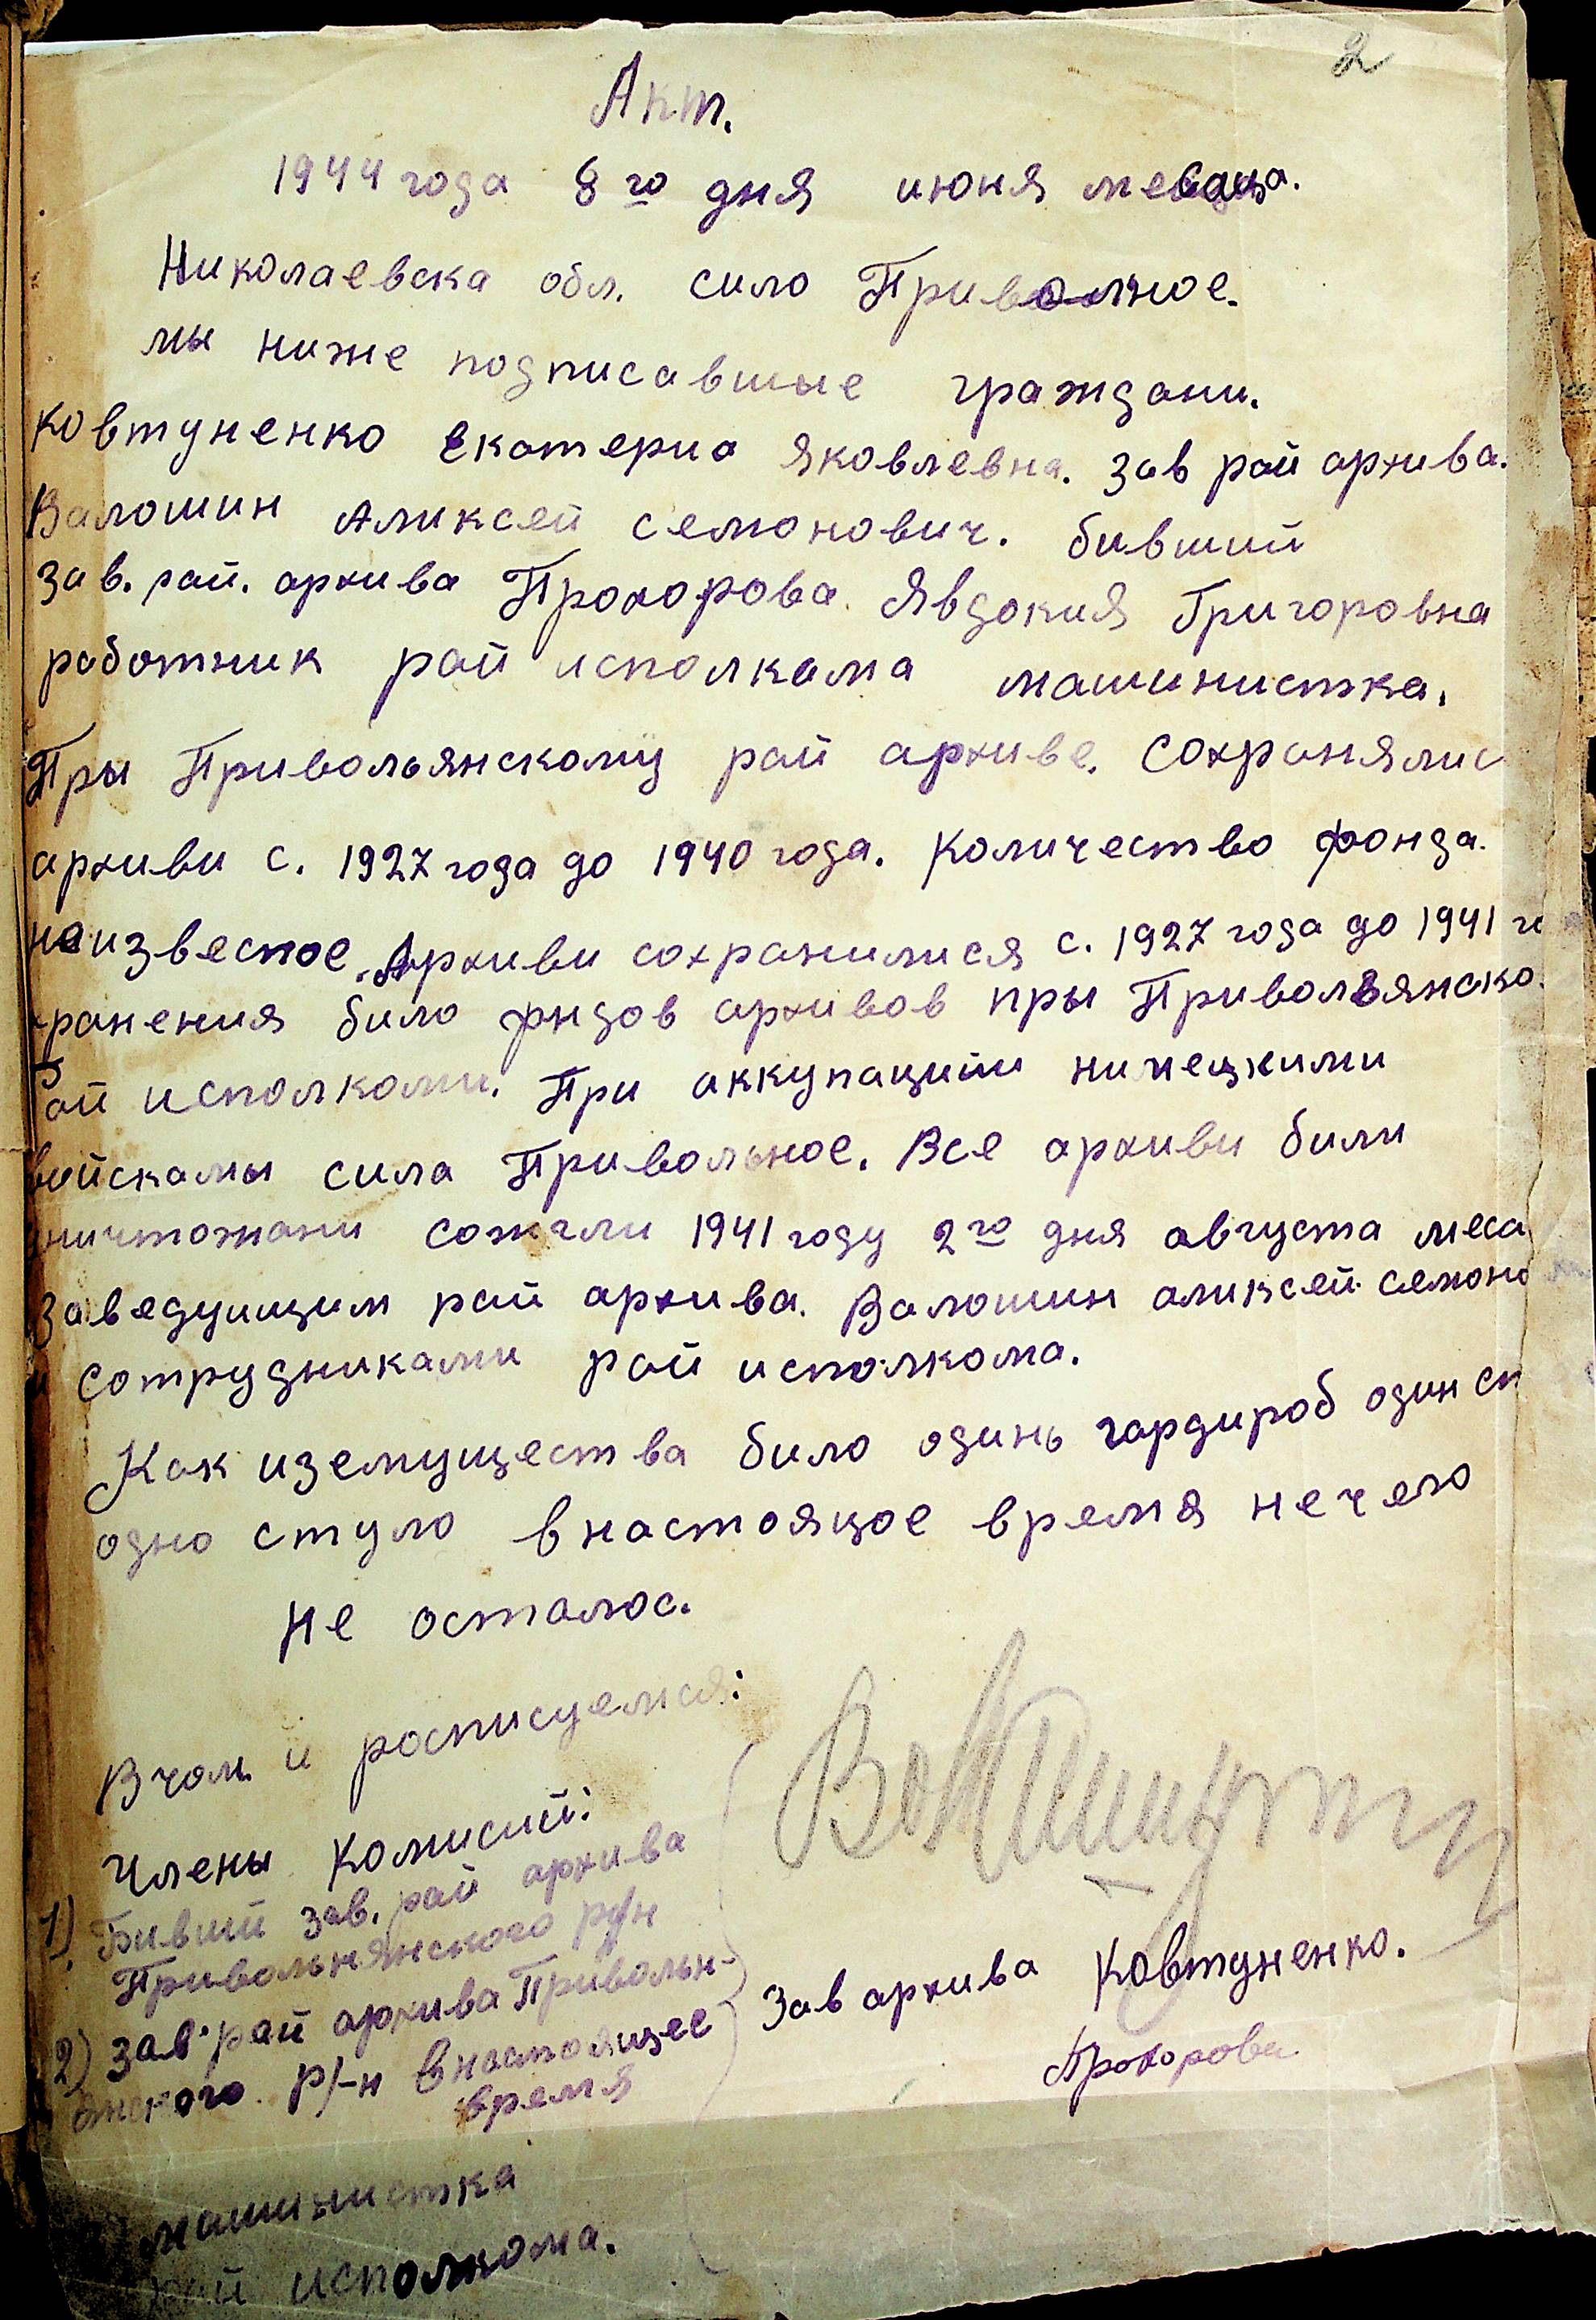 2
Акт.
1944 года 8го дня июня месаца.
Николаевска обл. сило Приволное.
мы ниже подписавшые граждани.
Ковтуненко Екатериа Яковлевна. Зав рай архива.
Валошин Аликсей Семонович. бивший
Зав. рай. архива Прохорова Явдокия Григоровна
работник рай исполкама машинистка.
Пры Привольянскому рай архиве. Сохранялис
архиви с. 1927 года до 1940 года. Количество фонда.
неизвесное. Архиви сохранилися с. 1927 года до 1941 го
хранения било фндов архивов пры Привольянско
Рай исполкоми. При аккупацийи нимецкими
войскамы сила Привольное. Все архиви били
уничтожани сожгли 1941 году 2го дня августа меса
Заведующим рай архива. Валошин аликсей семоно
и сотрудниками рай исполкома.
Как иземущества било одинь гардироб один ст
одно стуло внастояцое время нечего
не осталос.
Вчом и росписуемся:
Члены Комисий:
1) Бивший зав. рай архива
Привольнянского р/н
2) Зав. рай архива Привольн-
янского р/-н внастоящее
время
Зав архива Ковтуненко.
Прохорова
машинистка
рай исполкома.